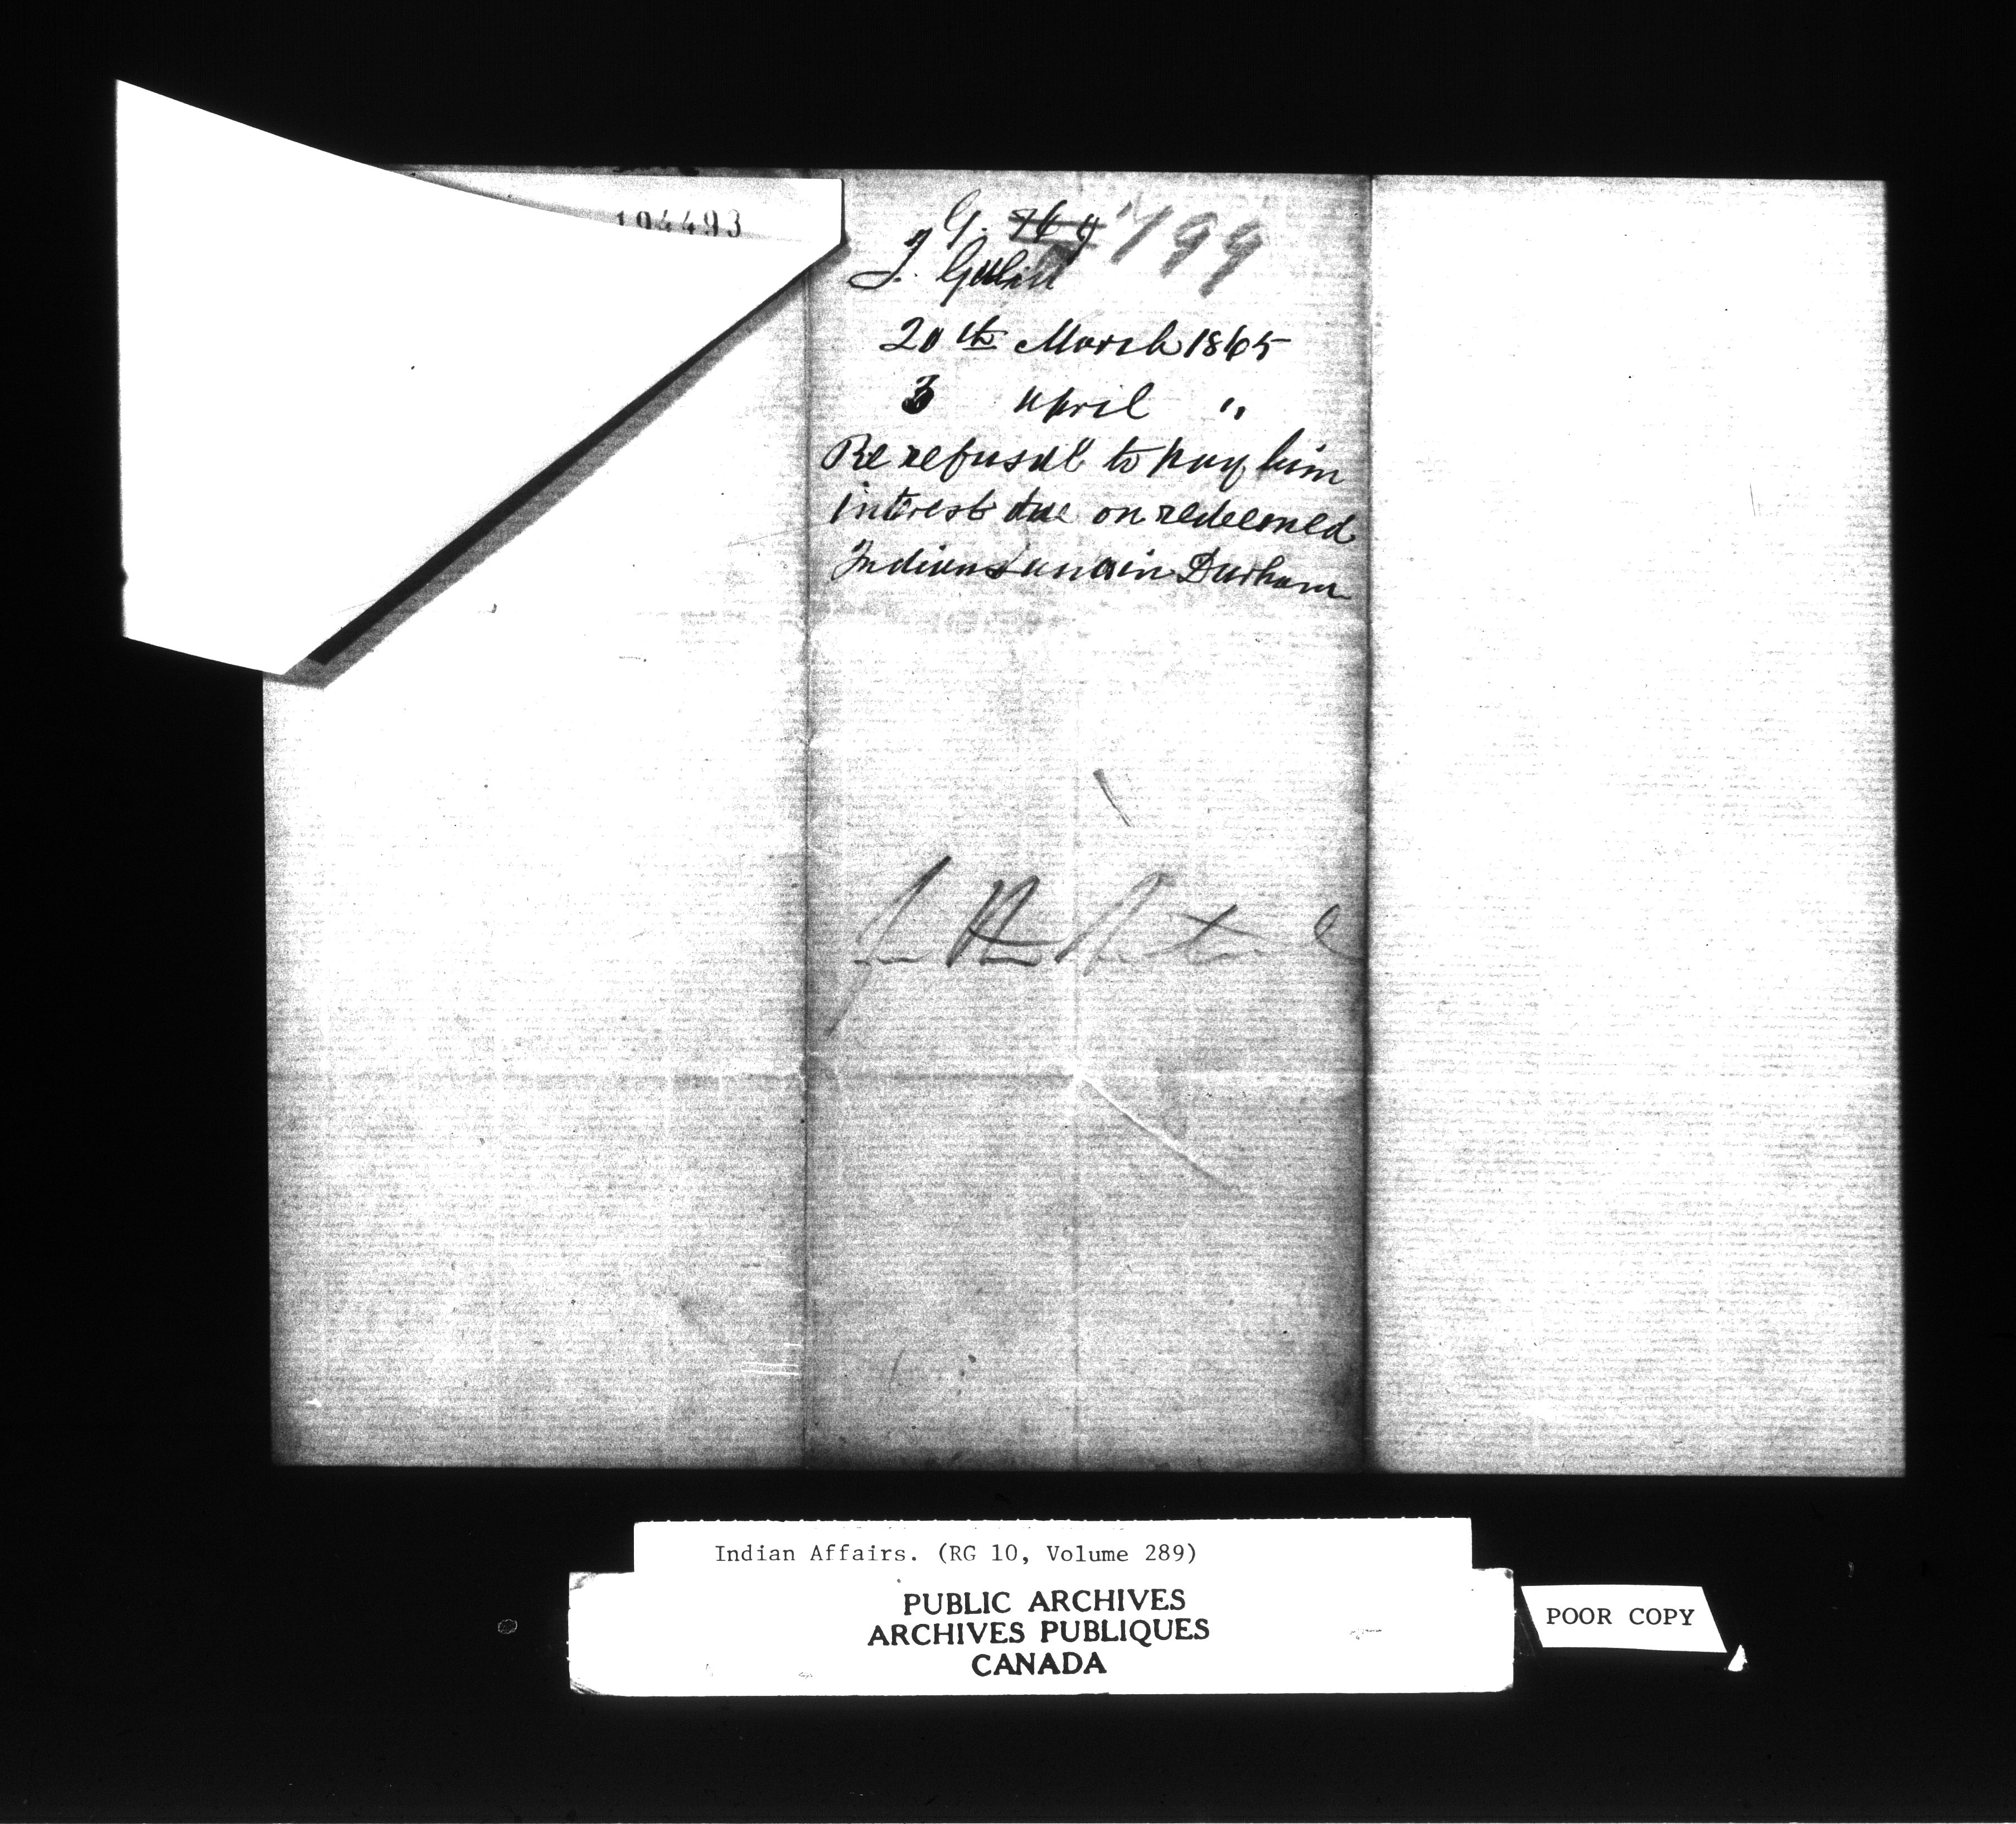 194493
G. 769 199
T.
20th March 1865
3 April "
Re refusal to pay him
interest due on redeemed
Indian Land in Durham
Indian Affairs. (RG 10, Volume 289)
PUBLIC ARCHIVES
ARCHIVES PUBLIQUES
CANADA
POOR COPY